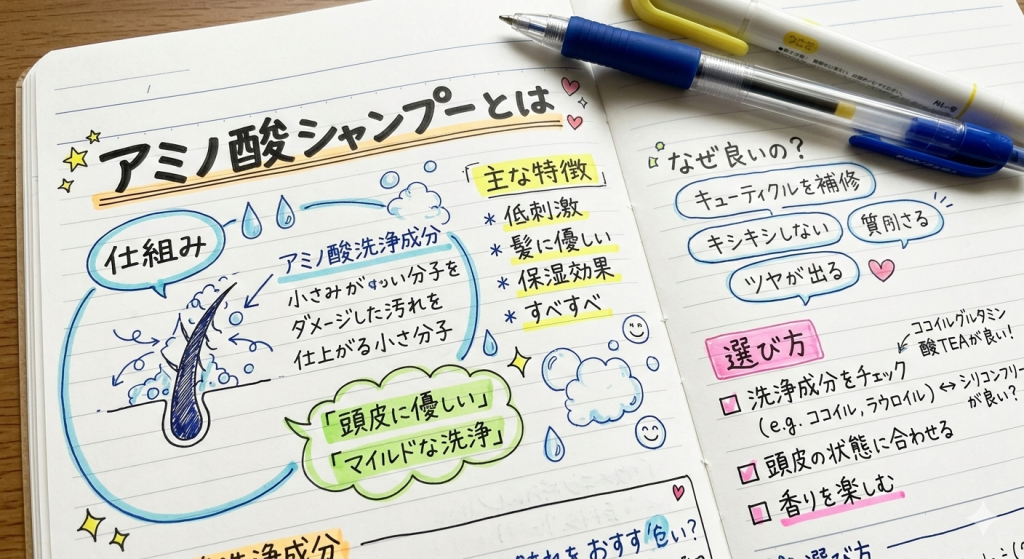 アミノ酸シャンプーとは
仕組み
アミノ酸洗浄成分
小さみがすい分子を
ダメージした汚れを
仕上がる小さ分子
「頭皮に優しい」
「マイルドな洗浄」
「主な特徴」
* 低刺激
* 髪に優しい
* 保湿効果
* すべすべ
洗浄成分
おすす
い?
なぜ良いの?
キューティクルを補修
キシキシしない
ツヤが出る
選び方
ココイルグルタミン
酸TEAが良い!
□ 洗浄成分をチェック
(e.g. ココイル, ラウロイル) ↔ シリコンフリー
が良い?
□ 頭皮の状態に合わせる
□ 香りを楽しむ
選び方